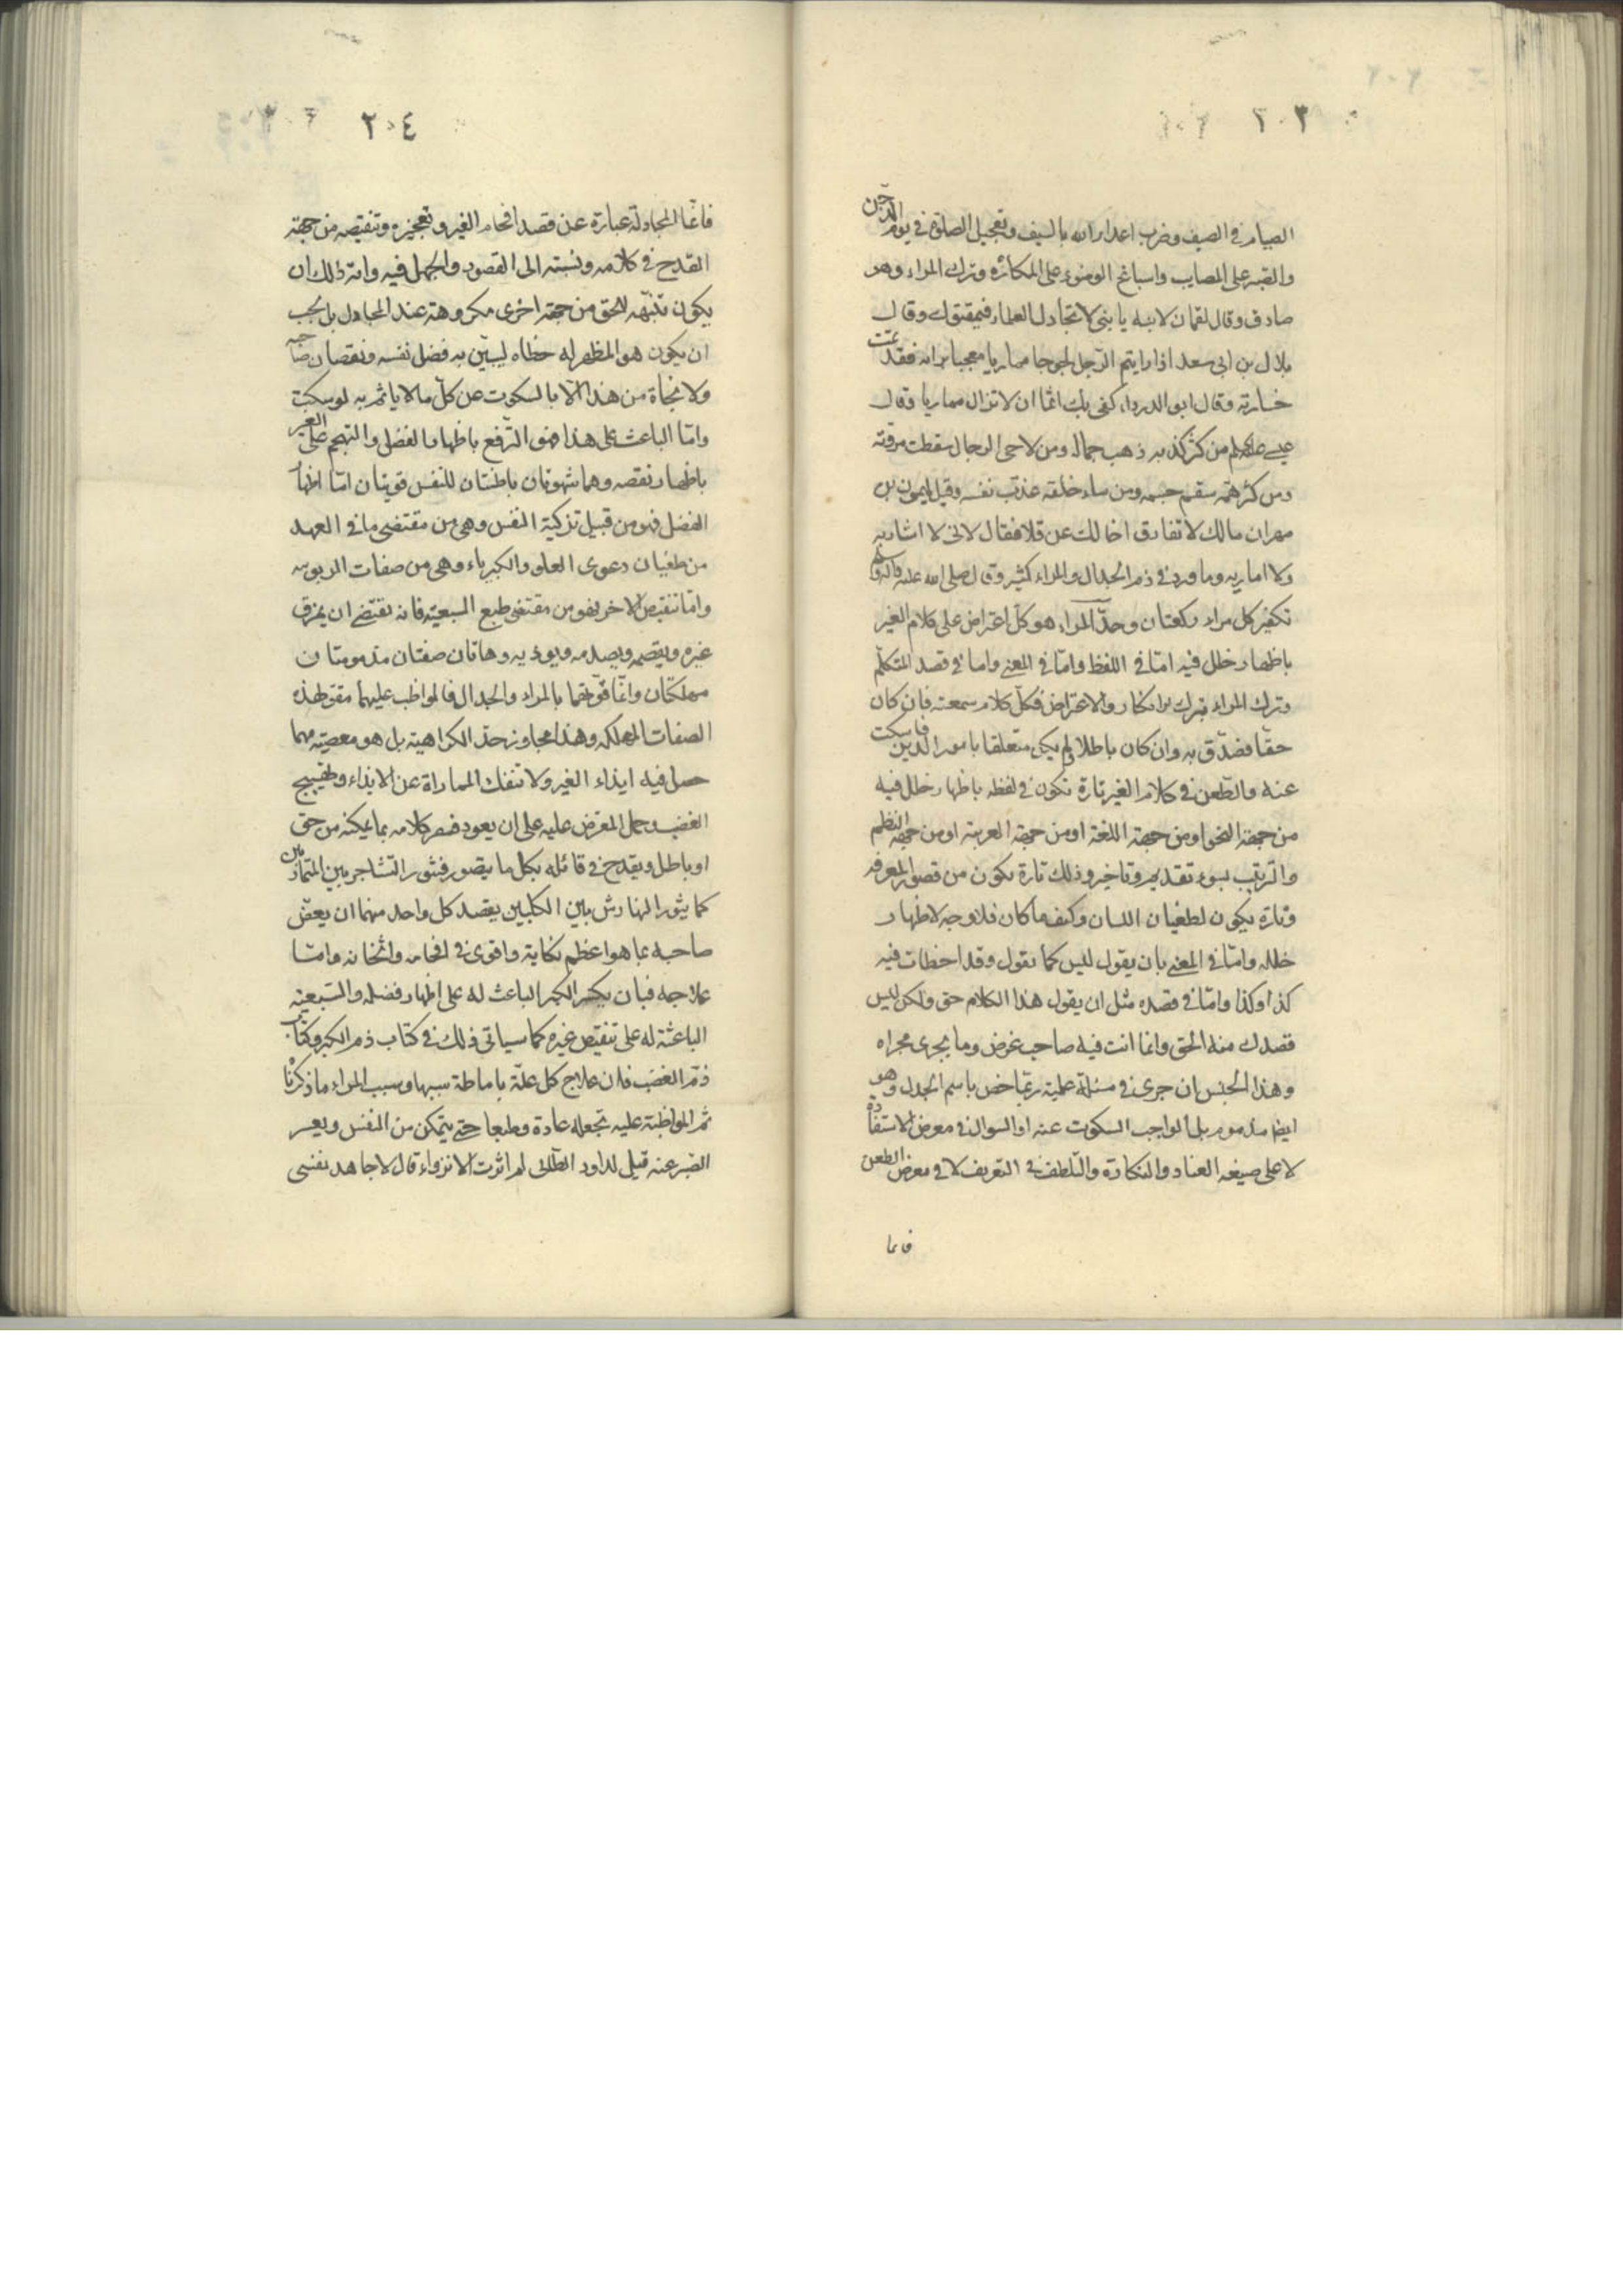 ٢٠٣
الصيام في الصيف وضرب اعداء الله بالسيف وتعجيل الصلوة في يوم الدجن
والصبر على المصايب واسباغ الوضوء على المكاره وترك المراء وهو
صادق وقال لقمان لابنه يا بنى لا تجادل العلماء فيمقتوك وقال
بلال بن ابى سعد اذا رايتم الرجل لجوجا مماريا معجبا برايه فقد تمت
خسارته وقال ابو الدرداء كفى بك اثما ان لا تزال مماريا وقال
عيسى من كثر كذبه ذهب جماله ومن لاحى الرجال سقطت مروته
ومن كثر همه سقم جسمه ومن ساء خلقه عذّب نفسه وقيل لميمون بن
مهران مالك لا تفارق اخا لك عن قلا فقال لانى لا اشاريه
ولا اماريه وما ورد في ذم الجدال والمراء كثير وقال صلى الله عليه وآله
تكفير كل مراء ركعتان وحدّ المراء هو كل اعتراض على كلام الغير
باظهار خلل فيه امّا في اللفظ وامّا في المعنى واما في قصد المتكلّم
وترك المراء بترك الانكار والاعتراض فكلّ كلام سمعته فان كان
حقّا فصدّق به وان كان باطلا ولم يكن متعلقا بامور الدين فاسكت
عنه والطّعن في كلام الغير تارة تكون في لفظه باظهار خلل فيه
من جهة النحو او من جهة اللغة او من جهة العربية او من جهة النظم
والترتيب بسوء تقديم وتاخير وذلك تارة يكون من قصور المعرفة
وتارة يكون لطغيان اللسان وكيف ما كان فلا وجه لاظهار
خلله وامّا في المعنى بان يقول ليس كما تقول وقد اخطات فيه
كذا وكذا وامّا في قصده مثل ان يقول هذا الكلام حق ولكن ليس
قصدك منه الحق وانما انت فيه صاحب غرض وما يجرى مجراه
وهذا الجنس ان جرى في مسئلة علمية ربّما خصّ باسم الجدل وهو
ايضا مذموم بل الواجب السكوت عنه او السوال في معرض الاستفادة
لا على صيغه العناد والنكارة والتلطف في التعريف لا في معرض الطعن
فانما
٢٠٤
فانّما المجادلة عبارة عن قصد افحام الغير وتعجيزه وتنقيصه من جهة
القدح في كلامه ونسبته الى القصور والجهل فيه واية ذلك ان
يكون تنبّهه للحق من جهة اخرى مكروهة عند المجادل بل يحب
ان يكون هو المظهر له خطاه ليبيّن به فضل نفسه ونقصان صاحبه
ولا نجاة من هذا الّا بالسكوت عن كلّ ما لا ياثم به لو سكت
وامّا الباعث على هذا فهو الترّفع باظهار الفضل والتهجم على الغير
باظهار نقصه وهما شهوتان باطنتان للنفس قويتان امّا اظهار
الفضل فهو من قبيل تزكية النفس وهي من مقتضى ما في العبد
من طغيان دعوى العلو والكبرياء وهي من صفات الربوبيه
وامّا تنقيص الاخر فهو من مقتضى طبع السبعيّة فانه تقتضى ان يمزق
غيره ويقصمه ويصدمه ويوذيه وهاتان صفتان مذمومتان
مهلكتان وانّما قوّتهما بالمراء والجدال فالمواظب عليهما مقوّ لهذه
الصفات المهلكه وهذا مجاوز حدّ الكراهية بل هو معصية مهما
حصل فيه ايذاء الغير ولا تنفك المماراة عن الايذاء وتهييج
الغضب وحمل المعترض عليه على ان يعود فينصر كلامه بما يمكنه من حق
او باطل ويقدح في قائله بكل ما يتصور فيثور التشاجر بين المتماريين
كما يثور الهارش بين الكلبين يقصد كل واحد منهما ان يعضّ
صاحبه بما هو اعظم نكاية واقوى في افحامه واثخانه وامّا
علاجه فبان يكسر الكبر الباعث له على اظهار فضله والسّبعيّة
الباعثة له على تنقيص غيره كما سياتى ذلك في كتاب ذم الكبر وكتاب
ذمّ الغضب فان علاج كل علّة باماطة سببها وسبب المراء ما ذكرنا
ثم المواظبة عليه تجعله عادة وطبعا حتى يتمكن من النفس ويعسر
الصبر عنه قيل لداود الطّائى لم اثرت الانزواء قال لاجاهد نفسى